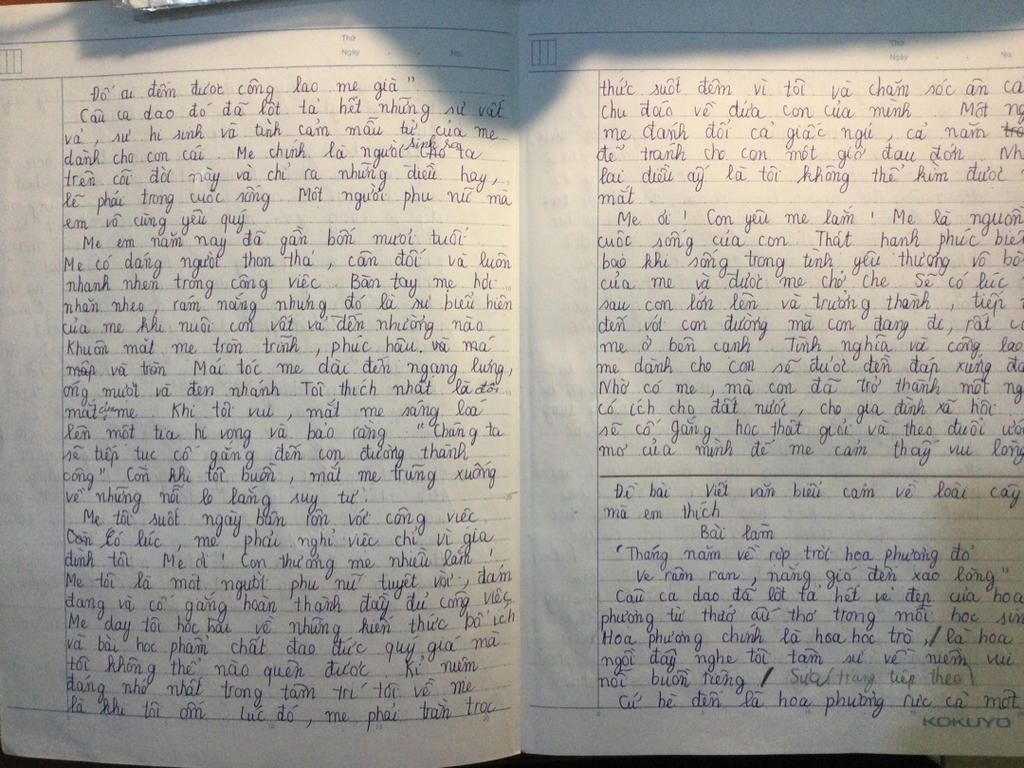 Thứ
Ngày
No.
Đố ai đếm được công lao mẹ già"
Câu ca dao đó đã lột tả hết những sự vất
vả, sự hi sinh và tình cảm mẫu tử của mẹ
dành cho con cái. Mẹ chính là người sinh ra cho ta
trên cõi đời này và chỉ ra những điều hay,
lẽ phải trong cuộc sống. Một người phụ nữ mà
em vô cùng yêu quý.
Mẹ em năm nay đã gần bốn mươi tuổi.
Mẹ có dáng người thon thả, cân đối và luôn
nhanh nhẹn trong công việc. Bàn tay mẹ hơi
nhăn nheo, rám nắng nhưng đó là sự biểu hiện
của mẹ khi nuôi con vất vả đến nhường nào
Khuôn mặt mẹ tròn trĩnh, phúc hậu. và má
mập và tròn. Mái tóc mẹ dài đến ngang lưng,
óng mượt và đen nhánh. Tôi thích nhất là đôi
mắt của mẹ. Khi tôi vui, mắt mẹ sáng loá
lên một tia hi vọng và bảo rằng: "Chúng ta
sẽ tiếp tục cố gắng đến con đường thành
công". Còn khi tôi buồn, mắt mẹ trũng xuống
về những nỗi lo lắng suy tư.
Mẹ tôi suốt ngày bận rộn với công việc.
Còn có lúc, mẹ phải nghỉ việc chỉ vì gia
đình tôi. Mẹ ơi! Con thương mẹ nhiều lắm!
Mẹ tôi là một người phụ nữ tuyệt vời, đảm
đang và cố gắng hoàn thành đầy đủ công việc.
Mẹ dạy tôi học bài về những kiến thức bổ ích
và bài học phẩm chất đạo đức quý giá mà
tôi không thể nào quên được. Kỉ niệm
đáng nhớ nhất trong tâm trí tôi về mẹ
là khi tôi ốm. Lúc đó, mẹ phải trằn trọc
Thứ
Ngày
No.
thức suốt đêm vì tôi và chăm sóc ân cầ
chu đáo về đứa con của mình. Một ng
mẹ đánh đổi cả giấc ngủ, cả năm
để tránh cho con một giờ đau đớn. Nh
lại điều ấy là tôi không thể kìm được
mắt.
Mẹ ơi! Con yêu mẹ lắm! Mẹ là nguồn
cuộc sống của con. Thật hạnh phúc biế
bao khi sống trong tình yêu thương vô bờ
của mẹ và được mẹ chở che. Sẽ có lúc
sau con lớn lên và trưởng thành, tiếp
đến với con đường mà con đang đi, rất c
mẹ ở bên cạnh. Tình nghĩa và công lao
mẹ dành cho con sẽ được đền đáp xứng đá
Nhờ có mẹ, mà con đã trở thành một ng
có ích cho đất nước, cho gia đình xã hội.
sẽ cố gắng học thật giỏi và theo đuổi ướ
mơ của mình để mẹ cảm thấy vui lòng
Đề bài: Viết văn biểu cảm về loài cây
mà em thích
Bài làm
"Tháng năm về rợp trời hoa phượng đỏ
Ve râm ran, nắng gió đến xao lòng"
Câu ca dao đã lột tả hết vẻ đẹp của hoa
phượng từ thuở ấu thơ trong mỗi học sin
Hoa phượng chính là hoa học trò, / là hoa
ngồi đấy nghe tôi tâm sự về niềm vui
nỗi buồn riêng / Sửa (trang tiếp theo)
Cứ hè đến là hoa phượng rực cả một
KOKUYO